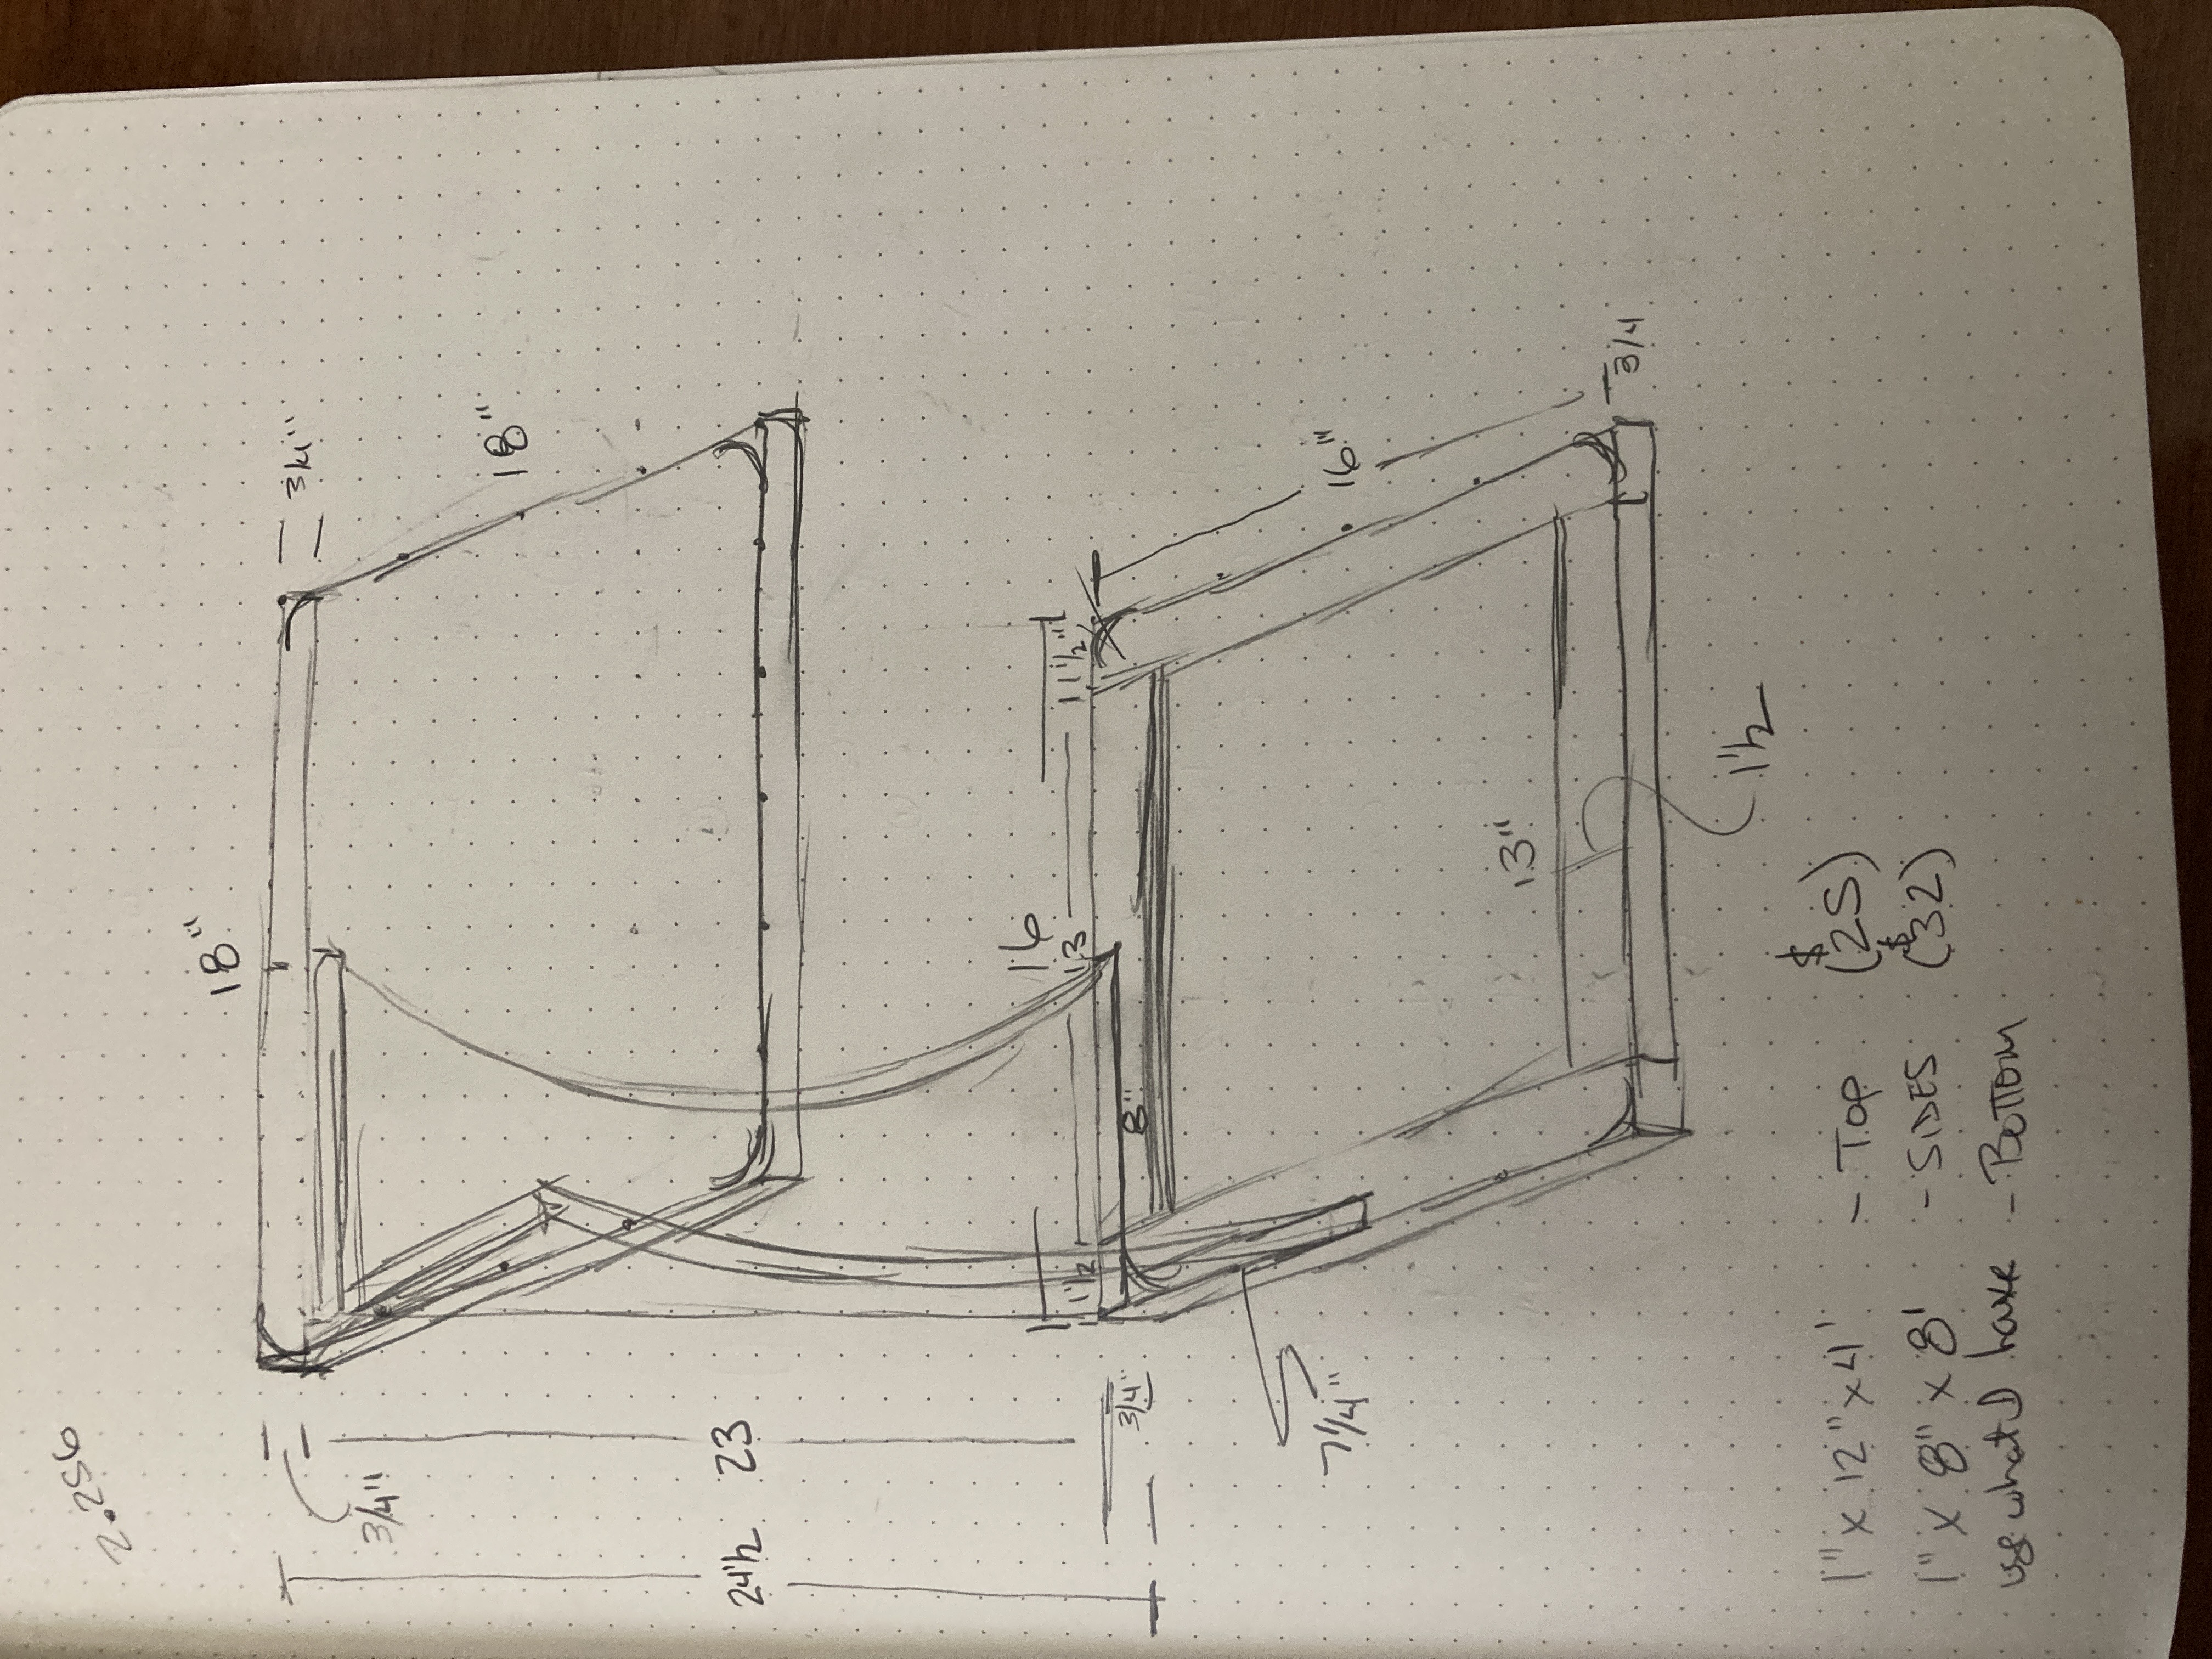 2.256
18"
3/4"
3/4"
18"
24 1/2
23
16
1 1/2
13
1 1/2"
3/4"
8"
7 1/4"
16"
13"
3/4
1 1/2
1" x 12" x 4' - TOP ($25)
1" x 8" x 8' - SIDES ($32)
use what I have - BOTTOM